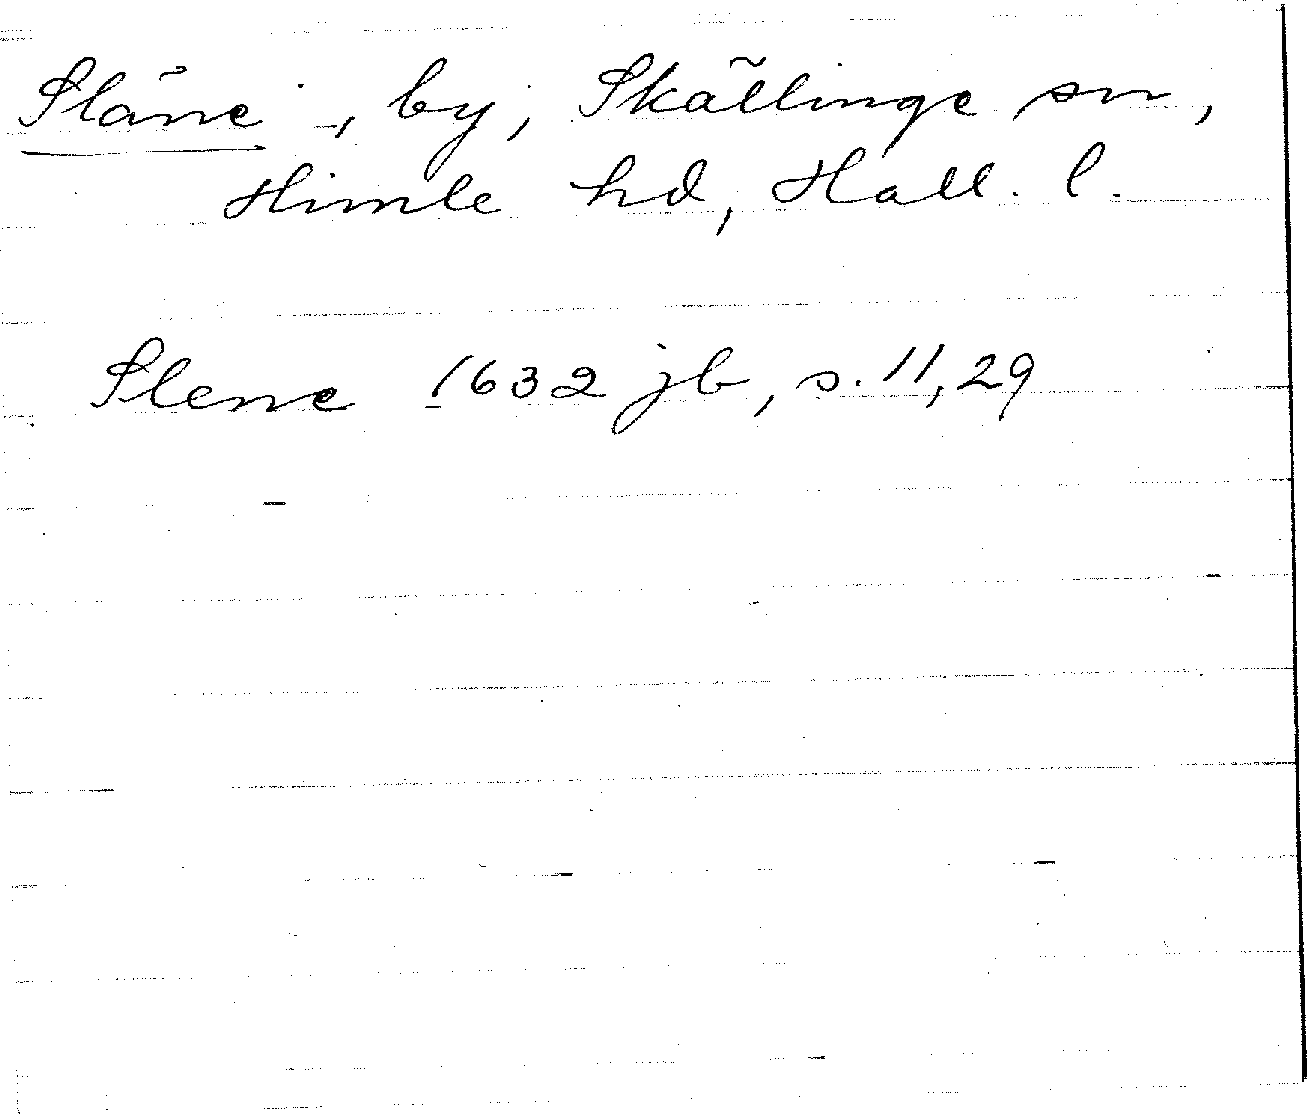 Släne, by, Skällinge sn,
Himle hd, Hall. l.
Slene 1632 jb, s. 11, 29